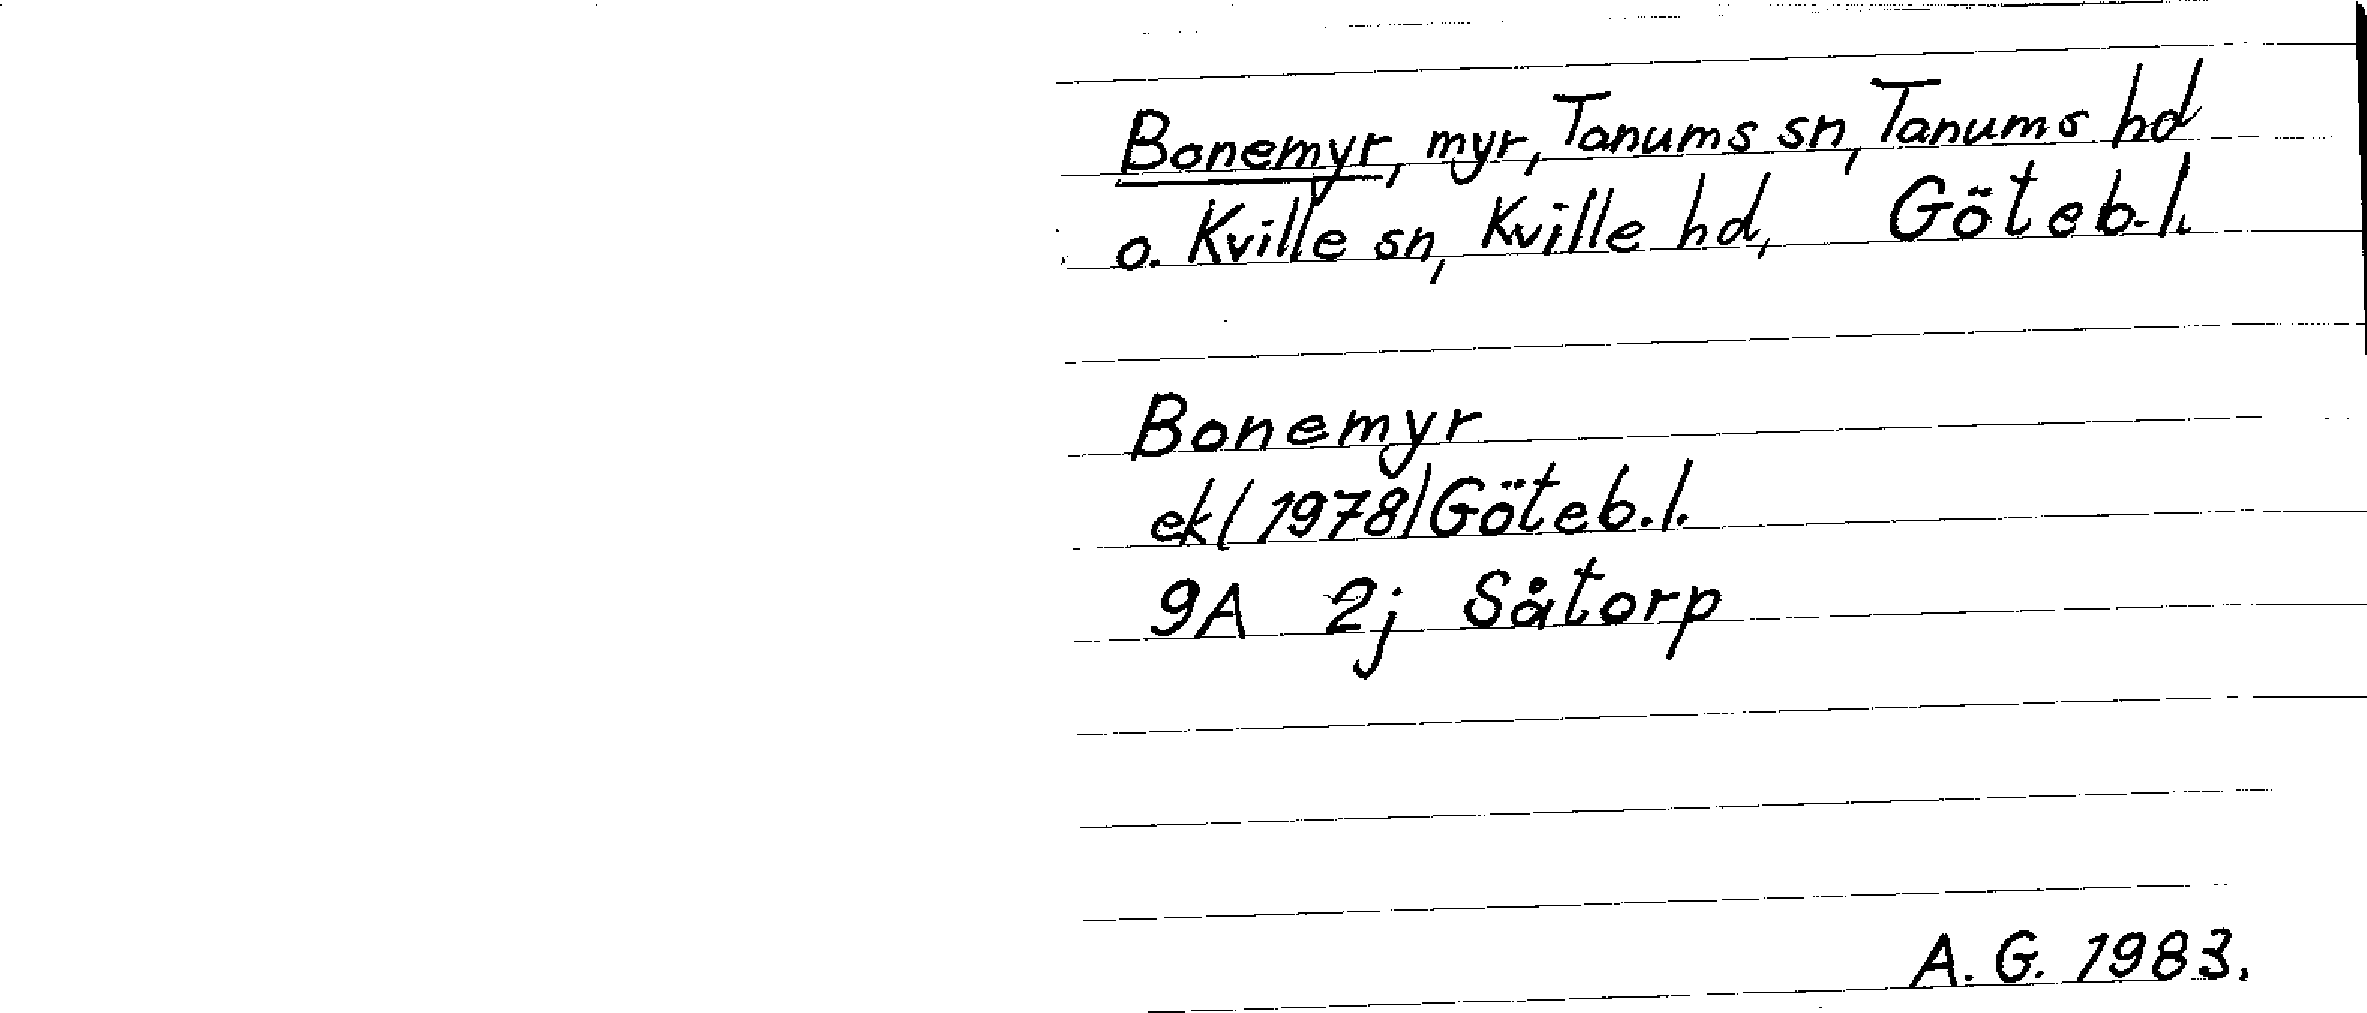 Bonemyr, myr, Tanums sn, Tanums hd
o. Kville sn, Kville hd, Göteb.l.
Bonemyr
ek (1978) Göteb.l.
9A 2j Såtorp
A. G. 1983.